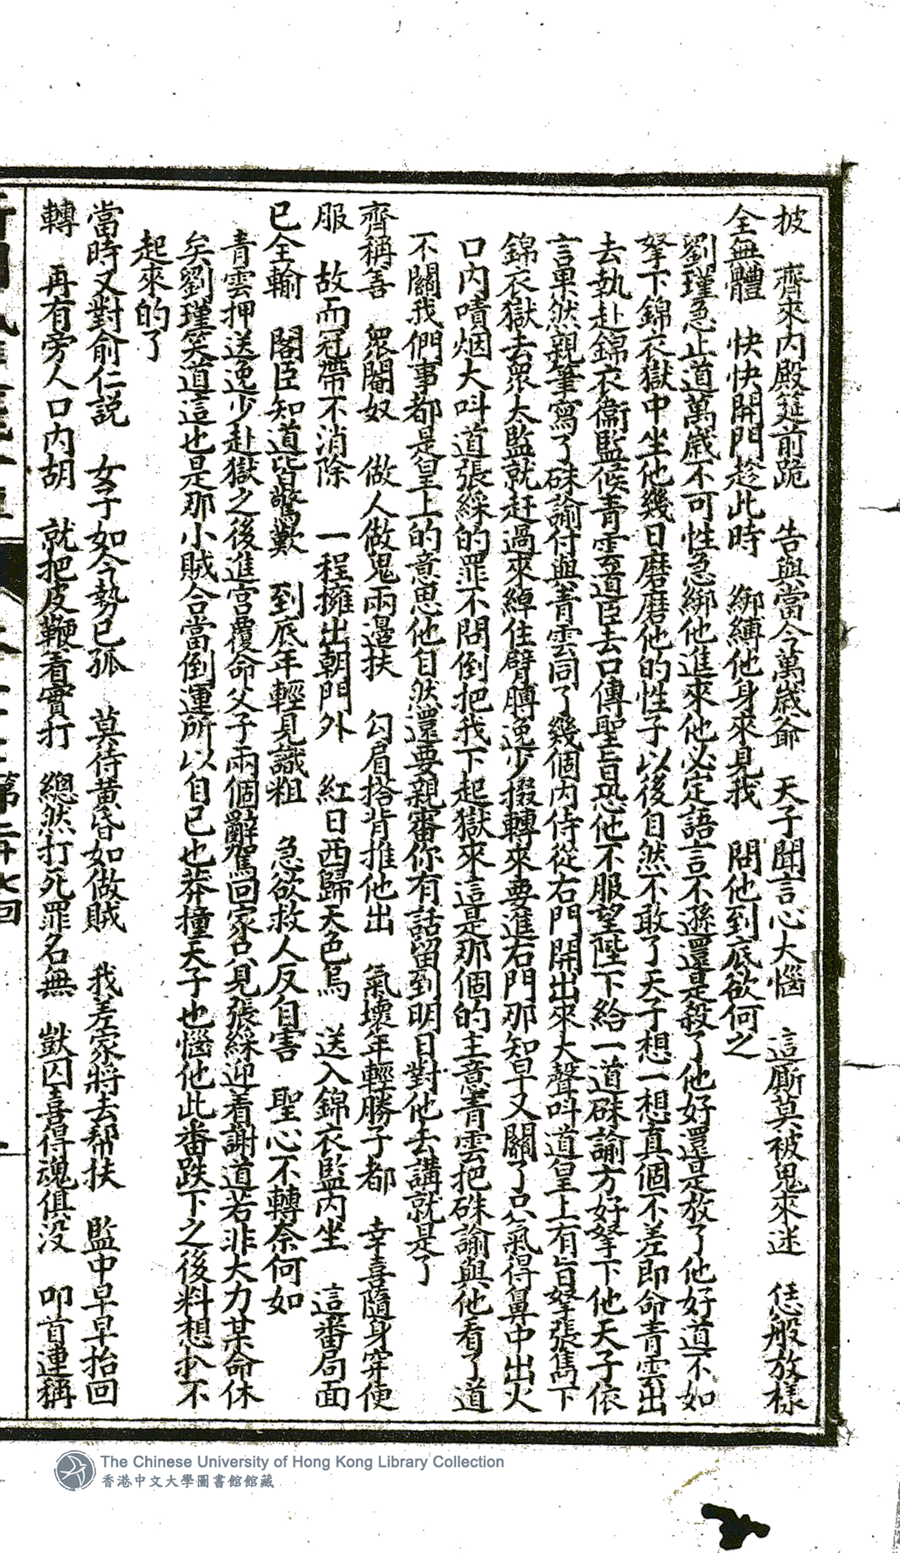 披　齊來內殿筵前跪　告與當今萬歲爺　天子聞言心大惱　這厮莫被鬼來迷　恁般放樣
全無體　快快開門趁此時　綁縛他身來見我　問他到底欲何之
劉瑾急止道萬歲不可性急綁他進來他必定語言不遜還是殺了他好還是放了他好道不如
拏下錦衣獄中坐他幾日磨磨他的性子以後自然不敢了天子想一想真個不差即命青雲出
去執赴錦衣衞監候青雲道臣去口傳聖旨恐他不服望陛下給一道硃諭方好拏下他天子依
言果然親筆寫了硃諭付與青雲同了幾個內侍從右門開出來大聲呌道皇上有旨拏張雋下
錦衣獄去衆太監就赶過來綽住臂膊逸少掇轉來要進右門那知早又關了只氣得鼻中出火
口內噴烟大呌道張綵的罪不問倒把我下起獄來這是那個的主意青雲把硃諭與他看了道
不關我們事都是皇上的意思他自然還要親審你有話留到明日對他去講就是了
齊稱善　衆閹奴　做人做鬼兩邊扶　勾肩搭背推他出　氣壞年輕勝子都　幸喜隨身穿便
服　故而冠帶不消除　一程擁出朝門外　紅日西歸天色烏　送入錦衣監內坐　這番局面
已全輸　閣臣知道皆驚歎　到底年輕見識粗　急欲救人反自害　聖心不轉奈何如
青雲押送逸少赴獄之後進宮覆命父子兩個辭駕回家只見張綵迎着謝道若非大力某命休
矣劉瑾笑道這也是那小賊合當倒運所以自已也莽撞天子也惱他此番跌下之後料想扒不
起來的了
當時又對俞仁説　女子如今勢已孤　莫待黃昏如做賊　我差家將去帮扶　監中早早抬回
轉　再有旁人口內胡　就把皮鞭着實打　總然打死罪名無　獃囚喜得魂俱沒　叩首連稱
第二十七回
The Chinese University of Hong Kong Library Collection
香港中文大學圖書館館藏